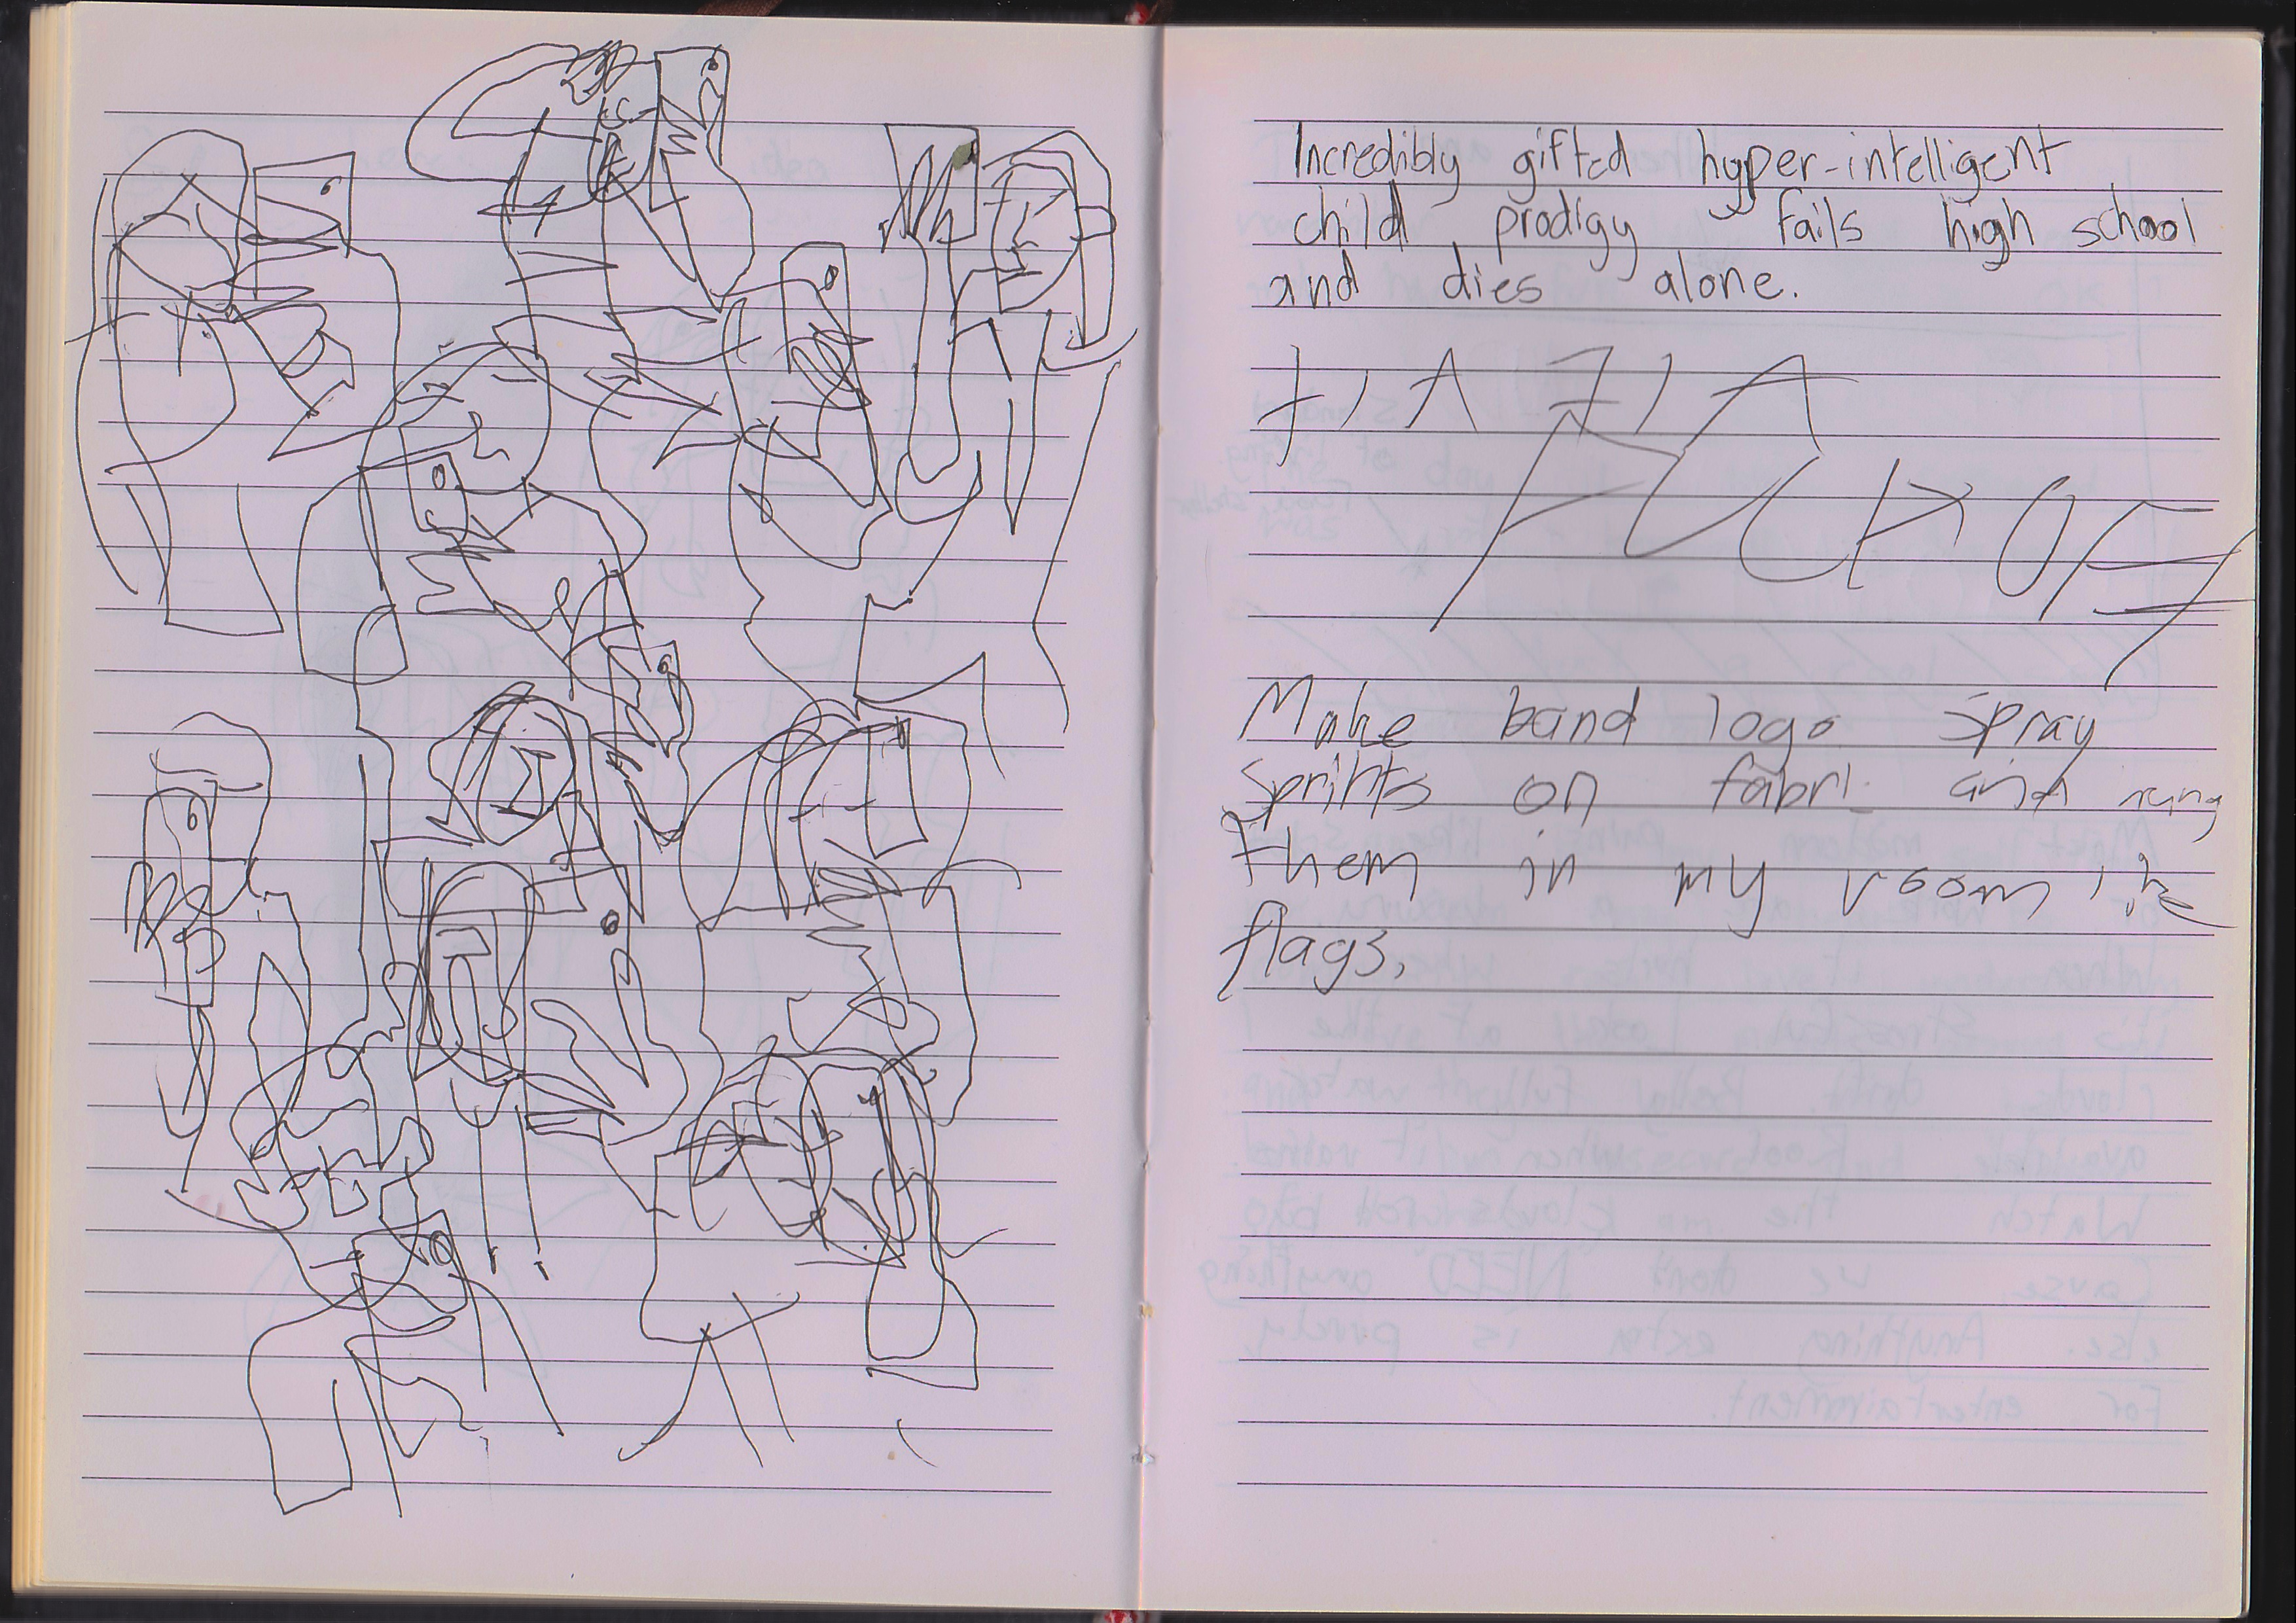 Incredibly gifted hyper-intelligent
child prodigy fails high school
and dies alone.
FUCK OFF
Make band logo spray
Sprints on fabri and
them in my room like
flags.